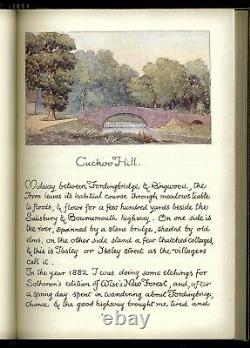 Cuckoo Hill.
Midway between Fordingbridge & Ringwood, the
Avon leaves its habitual course through meadows liable
to floods, & flows for a few hundred yards beside the
Salisbury & Bournemouth highway. On one side is
the river, spanned by a stone bridge, shaded by old
elms, on the other side stand a few thatched cottages, &
this is Ibsley or Ibsley street as the villagers
call it.
In the year 1882 I was doing some etchings for
Sotheran's edition of Wise's New Forest, and, after
a Spring day spent in wandering about Fordingbridge,
chance & the good highway brought me tired and
© ebay